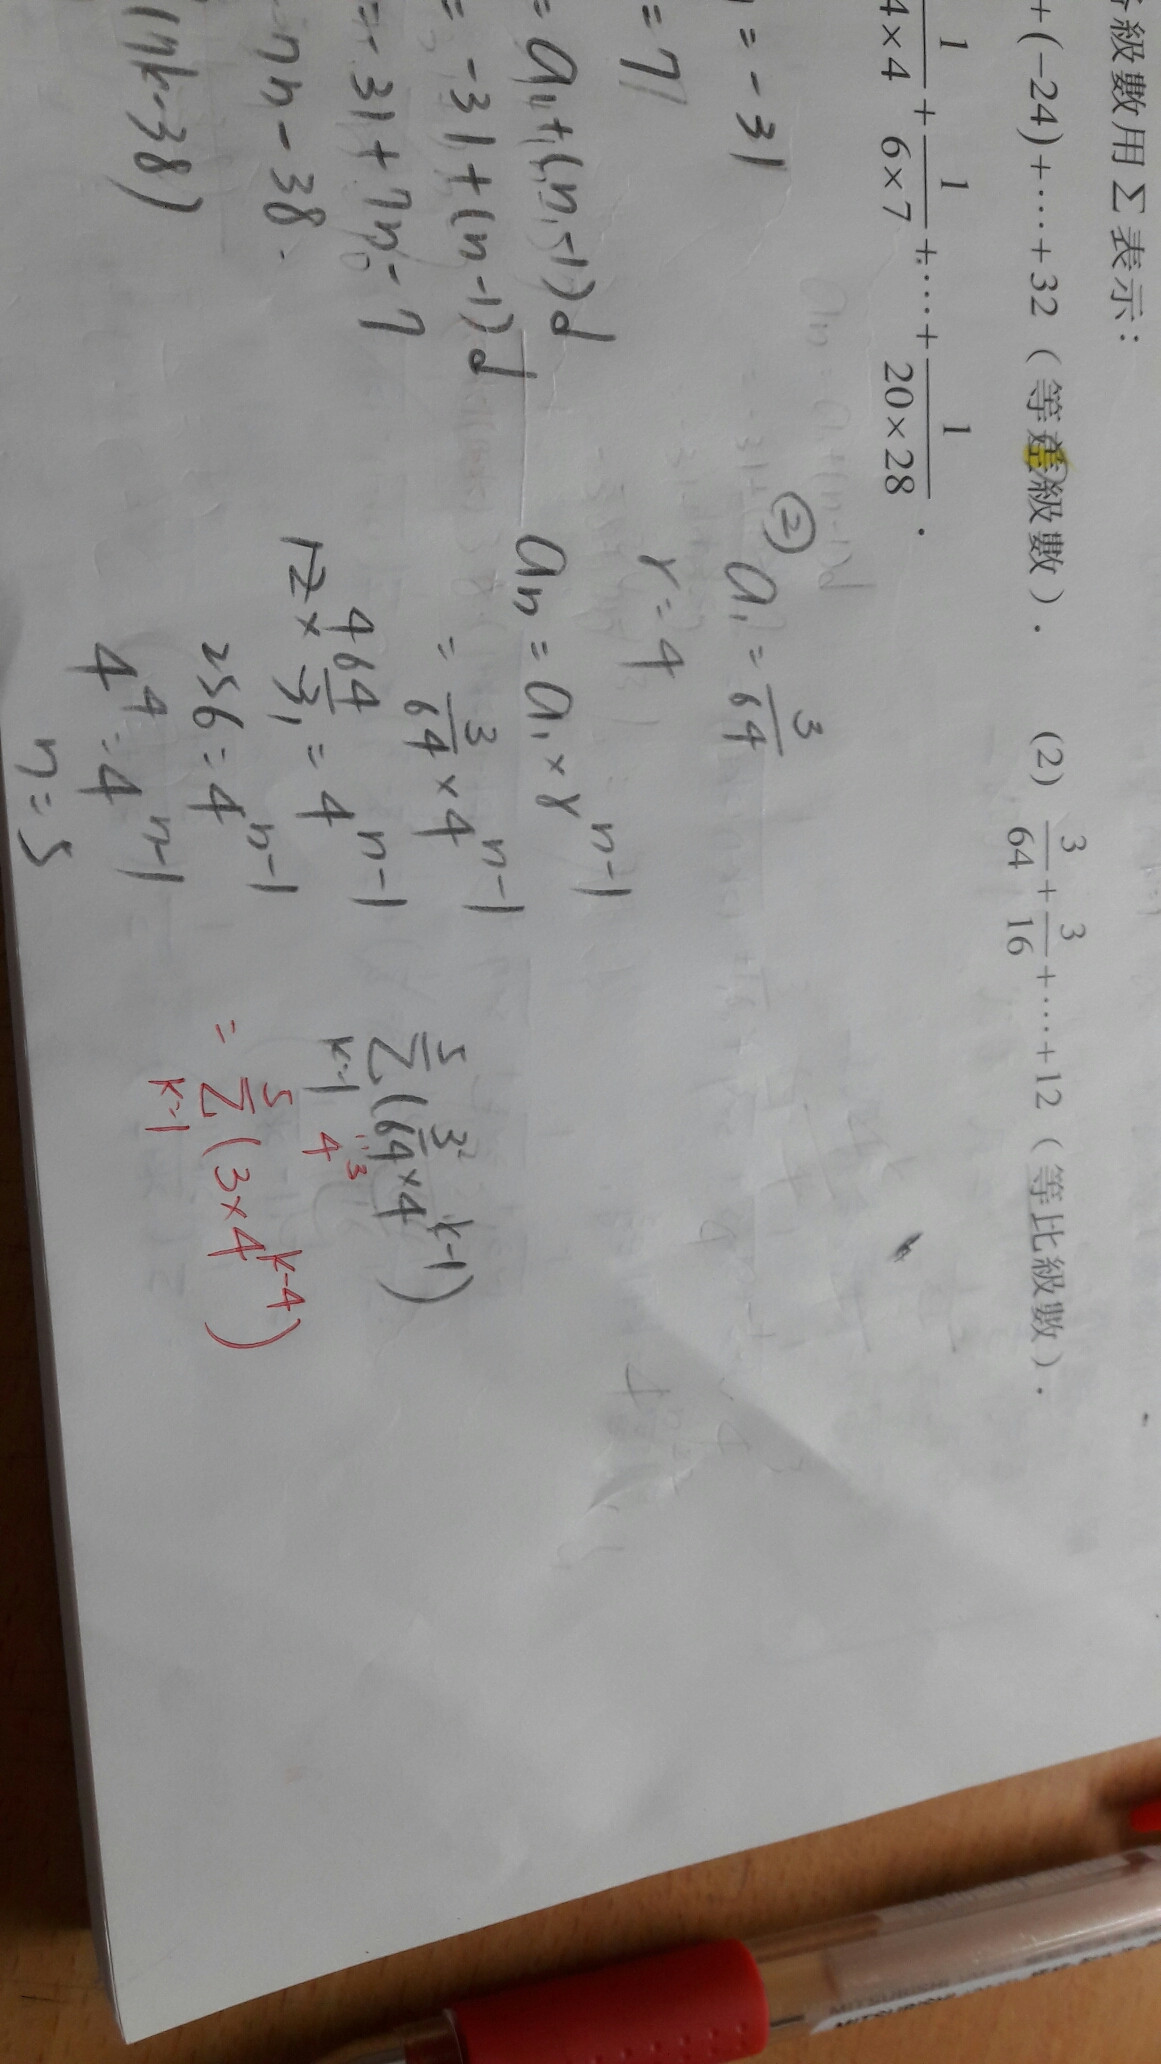 級數用 Σ 表示：
+(−24)+⋯+32（等差級數）． (2) 3/64+3/16+⋯+12（等比級數）．
1/4×4+1/6×7+⋯+1/20×28．
=-31
=7
=a1+(n-1)d
=-31+(n-1)d
=-31+7n-7
7n-38
(7k-38)
② a1=3/64
r=4
an=a1×r^n-1
=3/64×4^n-1
12×64/3=4^n-1
256=4^n-1
4^4=4^n-1
n=5
5
Σ(3/64×4^k-1)
k=1
4^3
5
=Σ(3×4^k-4)
k=1